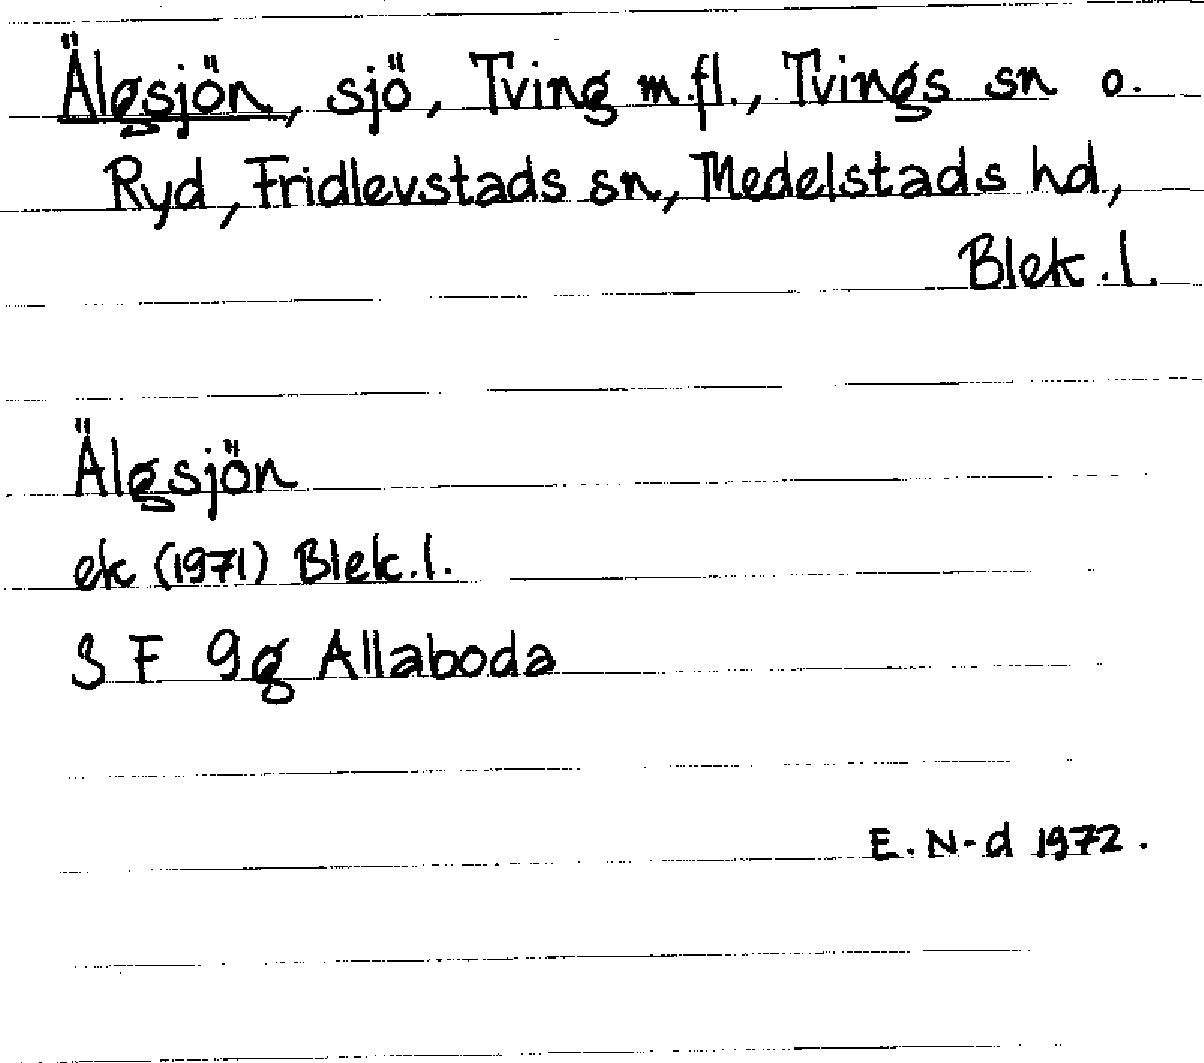 Älgsjön, sjö, Tving m.fl., Tvings sn o.
Ryd, Fridlevstads sn, Medelstads hd,
Blek.l.
Älgsjön
ek (1971) Blek.l.
3 F 9g Allaboda
E. N-d 1972.